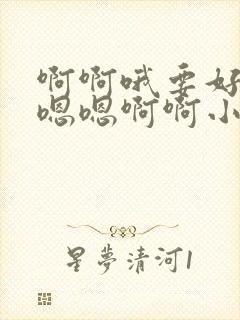 啊啊哦要好
嗯嗯啊啊小
星夢清河1